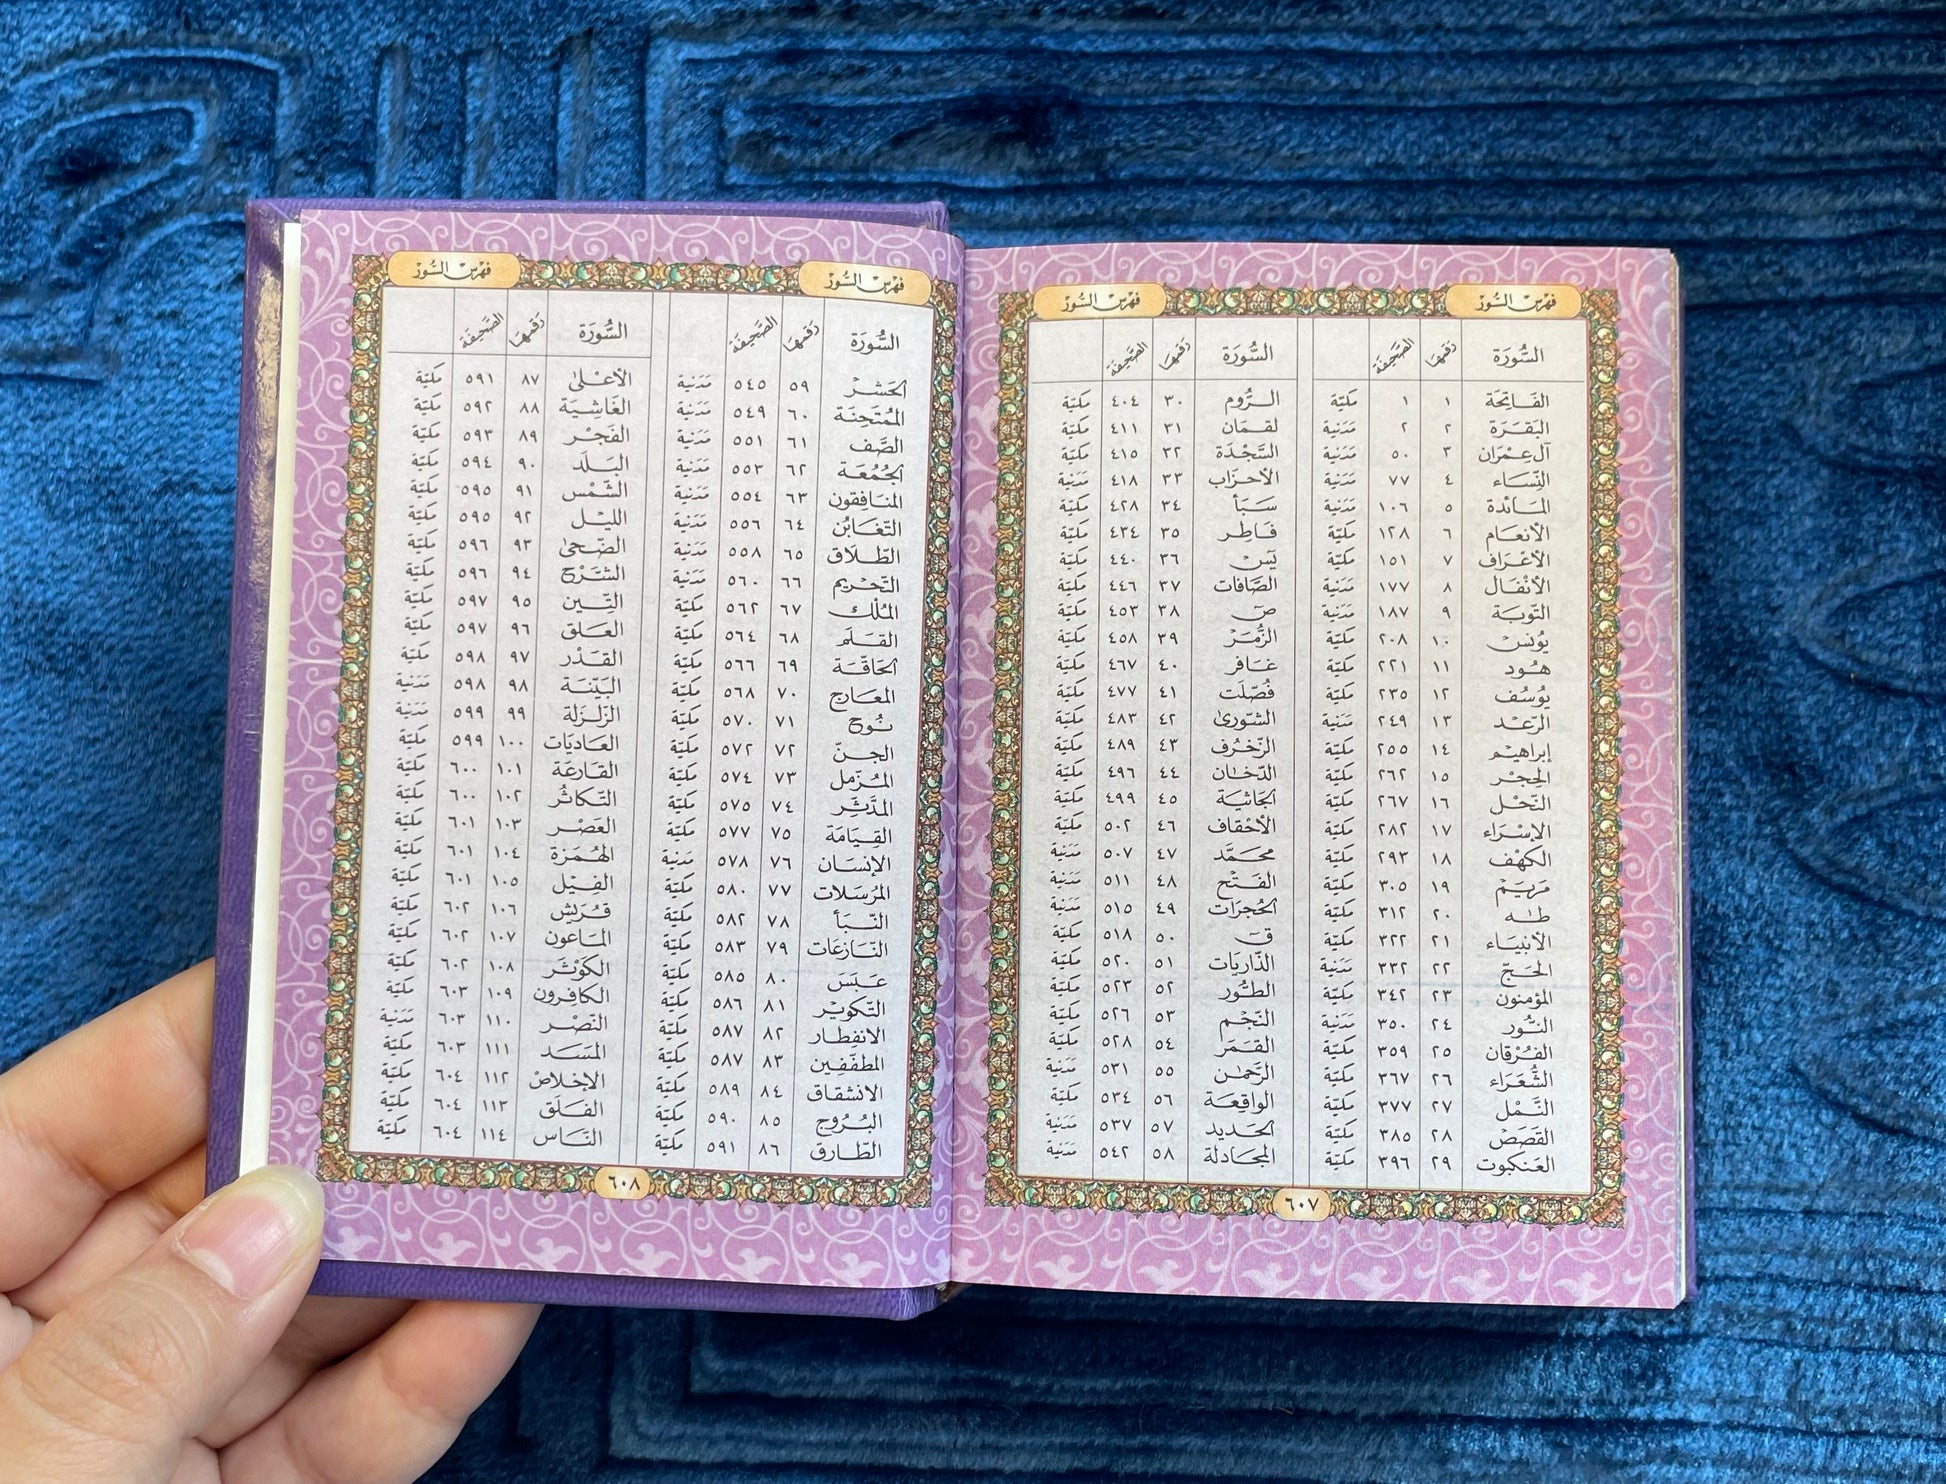 فهرس السور
فهرس السور
السُّورَة رَقمهَا الصَّحِيفَة
الفَاتِحَة ١ ١ مكيّة
البَقَرَة ٢ ٢ مَدَنية
آل عِمْرَان ٣ ٥٠ مَدَنية
النِّسَاء ٤ ٧٧ مَدَنية
المَائدة ٥ ١٠٦ مَدَنية
الأنعَام ٦ ١٢٨ مكيّة
الأعْرَاف ٧ ١٥١ مكيّة
الأنْفَال ٨ ١٧٧ مَدَنية
التّوبَة ٩ ١٨٧ مَدَنية
يُونس ١٠ ٢٠٨ مكيّة
هُود ١١ ٢٢١ مكيّة
يُوسُف ١٢ ٢٣٥ مكيّة
الرّعْد ١٣ ٢٤٩ مَدَنية
إبراهِيم ١٤ ٢٥٥ مكيّة
الحِجر ١٥ ٢٦٢ مكيّة
النّحْل ١٦ ٢٦٧ مكيّة
الإسْرَاء ١٧ ٢٨٢ مكيّة
الكهْف ١٨ ٢٩٣ مكيّة
مَريَم ١٩ ٣٠٥ مكيّة
طٰه ٢٠ ٣١٢ مكيّة
الأنبيَاء ٢١ ٣٢٢ مكيّة
الحَجّ ٢٢ ٣٣٢ مَدَنية
المؤمنون ٢٣ ٣٤٢ مكيّة
النّور ٢٤ ٣٥٠ مَدَنية
الفُرْقان ٢٥ ٣٥٩ مكيّة
الشُّعَرَاء ٢٦ ٣٦٧ مكيّة
النَّمْل ٢٧ ٣٧٧ مكيّة
القَصَص ٢٨ ٣٨٥ مكيّة
العَنكبوت ٢٩ ٣٩٦ مكيّة
السُّورَة رَقمهَا الصَّحِيفَة
الرُّوم ٣٠ ٤٠٤ مكيّة
لقمَان ٣١ ٤١١ مكيّة
السَّجْدَة ٣٢ ٤١٥ مكيّة
الأحزَاب ٣٣ ٤١٨ مَدَنية
سَبَأ ٣٤ ٤٢٨ مكيّة
فَاطِر ٣٥ ٤٣٤ مكيّة
يسٓ ٣٦ ٤٤٠ مكيّة
الصَّافات ٣٧ ٤٤٦ مكيّة
صٓ ٣٨ ٤٥٣ مكيّة
الزُّمَر ٣٩ ٤٥٨ مكيّة
غافر ٤٠ ٤٦٧ مكيّة
فُصّلَت ٤١ ٤٧٧ مكيّة
الشّورىٰ ٤٢ ٤٨٣ مكيّة
الزّخرف ٤٣ ٤٨٩ مكيّة
الدّخَان ٤٤ ٤٩٦ مكيّة
الجَاثيَة ٤٥ ٤٩٩ مكيّة
الأحْقاف ٤٦ ٥٠٢ مكيّة
محَمَّد ٤٧ ٥٠٧ مَدَنية
الفَتْح ٤٨ ٥١١ مَدَنية
الحُجرَات ٤٩ ٥١٥ مَدَنية
قٓ ٥٠ ٥١٨ مكيّة
الذّاريَات ٥١ ٥٢٠ مكيّة
الطُّور ٥٢ ٥٢٣ مكيّة
النّجْم ٥٣ ٥٢٦ مكيّة
القَمَر ٥٤ ٥٢٨ مكيّة
الرَّحمٰن ٥٥ ٥٣١ مَدَنية
الواقِعَة ٥٦ ٥٣٤ مكيّة
الحَديد ٥٧ ٥٣٧ مَدَنية
المجَادلة ٥٨ ٥٤٢ مَدَنية
٦٠٧
فهرس السور
فهرس السور
السُّورَة رَقمهَا الصَّحِيفَة
الحَشر ٥٩ ٥٤٥ مَدَنية
المُمتَحِنَة ٦٠ ٥٤٩ مَدَنية
الصَّف ٦١ ٥٥١ مَدَنية
الجُمُعَة ٦٢ ٥٥٣ مَدَنية
المنَافِقون ٦٣ ٥٥٤ مَدَنية
التّغابُن ٦٤ ٥٥٦ مَدَنية
الطّلَاق ٦٥ ٥٥٨ مَدَنية
التّحْريم ٦٦ ٥٦٠ مَدَنية
المُلْك ٦٧ ٥٦٢ مكيّة
القَلَم ٦٨ ٥٦٤ مكيّة
الحَاقّة ٦٩ ٥٦٦ مكيّة
المعَارج ٧٠ ٥٦٨ مكيّة
نُوح ٧١ ٥٧٠ مكيّة
الجنّ ٧٢ ٥٧٢ مكيّة
المُزّمل ٧٣ ٥٧٤ مكيّة
المدَّثّر ٧٤ ٥٧٥ مكيّة
القِيَامَة ٧٥ ٥٧٧ مكيّة
الإنسَان ٧٦ ٥٧٨ مَدَنية
المُرسَلات ٧٧ ٥٨٠ مكيّة
النّبَأ ٧٨ ٥٨٢ مكيّة
النّازعَات ٧٩ ٥٨٣ مكيّة
عَبَسَ ٨٠ ٥٨٥ مكيّة
التّكوير ٨١ ٥٨٦ مكيّة
الانفِطار ٨٢ ٥٨٧ مكيّة
المطفّفِين ٨٣ ٥٨٧ مكيّة
الانشقاق ٨٤ ٥٨٩ مكيّة
البُرُوج ٨٥ ٥٩٠ مكيّة
الطّارق ٨٦ ٥٩١ مكيّة
السُّورَة رَقمهَا الصَّحِيفَة
الأعْلىٰ ٨٧ ٥٩١ مكيّة
الغَاشِيَة ٨٨ ٥٩٢ مكيّة
الفَجْر ٨٩ ٥٩٣ مكيّة
البَلَد ٩٠ ٥٩٤ مكيّة
الشّمْس ٩١ ٥٩٥ مكيّة
الليْل ٩٢ ٥٩٥ مكيّة
الضّحىٰ ٩٣ ٥٩٦ مكيّة
الشّرْح ٩٤ ٥٩٦ مكيّة
التِّين ٩٥ ٥٩٧ مكيّة
العَلق ٩٦ ٥٩٧ مكيّة
القَدْر ٩٧ ٥٩٨ مكيّة
البَيّنَة ٩٨ ٥٩٨ مَدَنية
الزّلزلة ٩٩ ٥٩٩ مَدَنية
العَاديَات ١٠٠ ٥٩٩ مكيّة
القَارعَة ١٠١ ٦٠٠ مكيّة
التّكاثُر ١٠٢ ٦٠٠ مكيّة
العَصْر ١٠٣ ٦٠١ مكيّة
الهُمَزة ١٠٤ ٦٠١ مكيّة
الفِيْل ١٠٥ ٦٠١ مكيّة
قُرَيش ١٠٦ ٦٠٢ مكيّة
المَاعون ١٠٧ ٦٠٢ مكيّة
الكَوْثر ١٠٨ ٦٠٢ مكيّة
الكافِرون ١٠٩ ٦٠٣ مكيّة
النّصْر ١١٠ ٦٠٣ مَدَنية
المَسَد ١١١ ٦٠٣ مكيّة
الإخلاص ١١٢ ٦٠٤ مكيّة
الفَلَق ١١٣ ٦٠٤ مكيّة
النَّاس ١١٤ ٦٠٤ مكيّة
٦٠٨